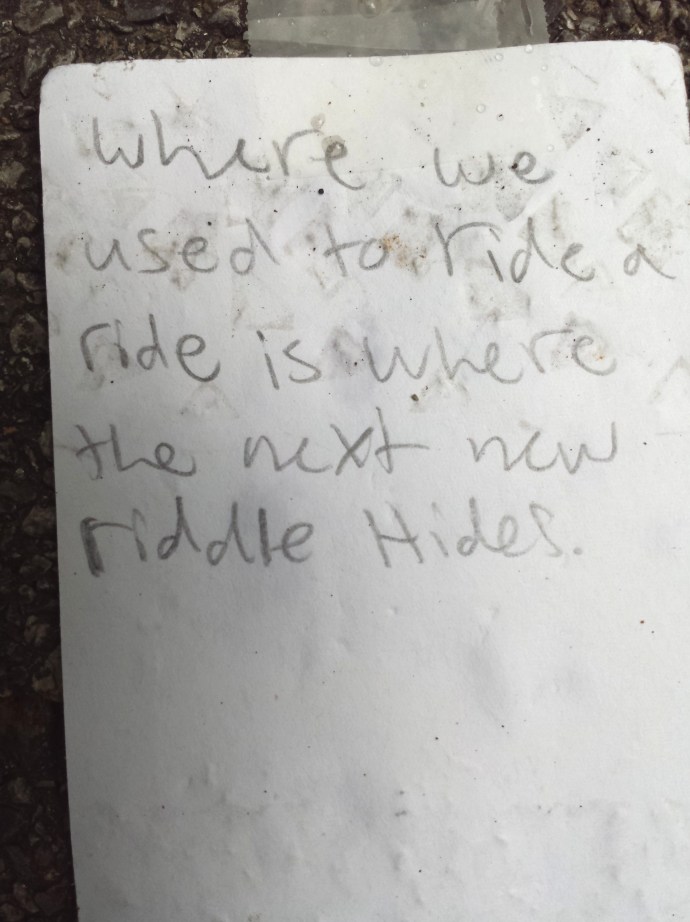 where we
used to ride a
ride is where
the next new
riddle Hides.